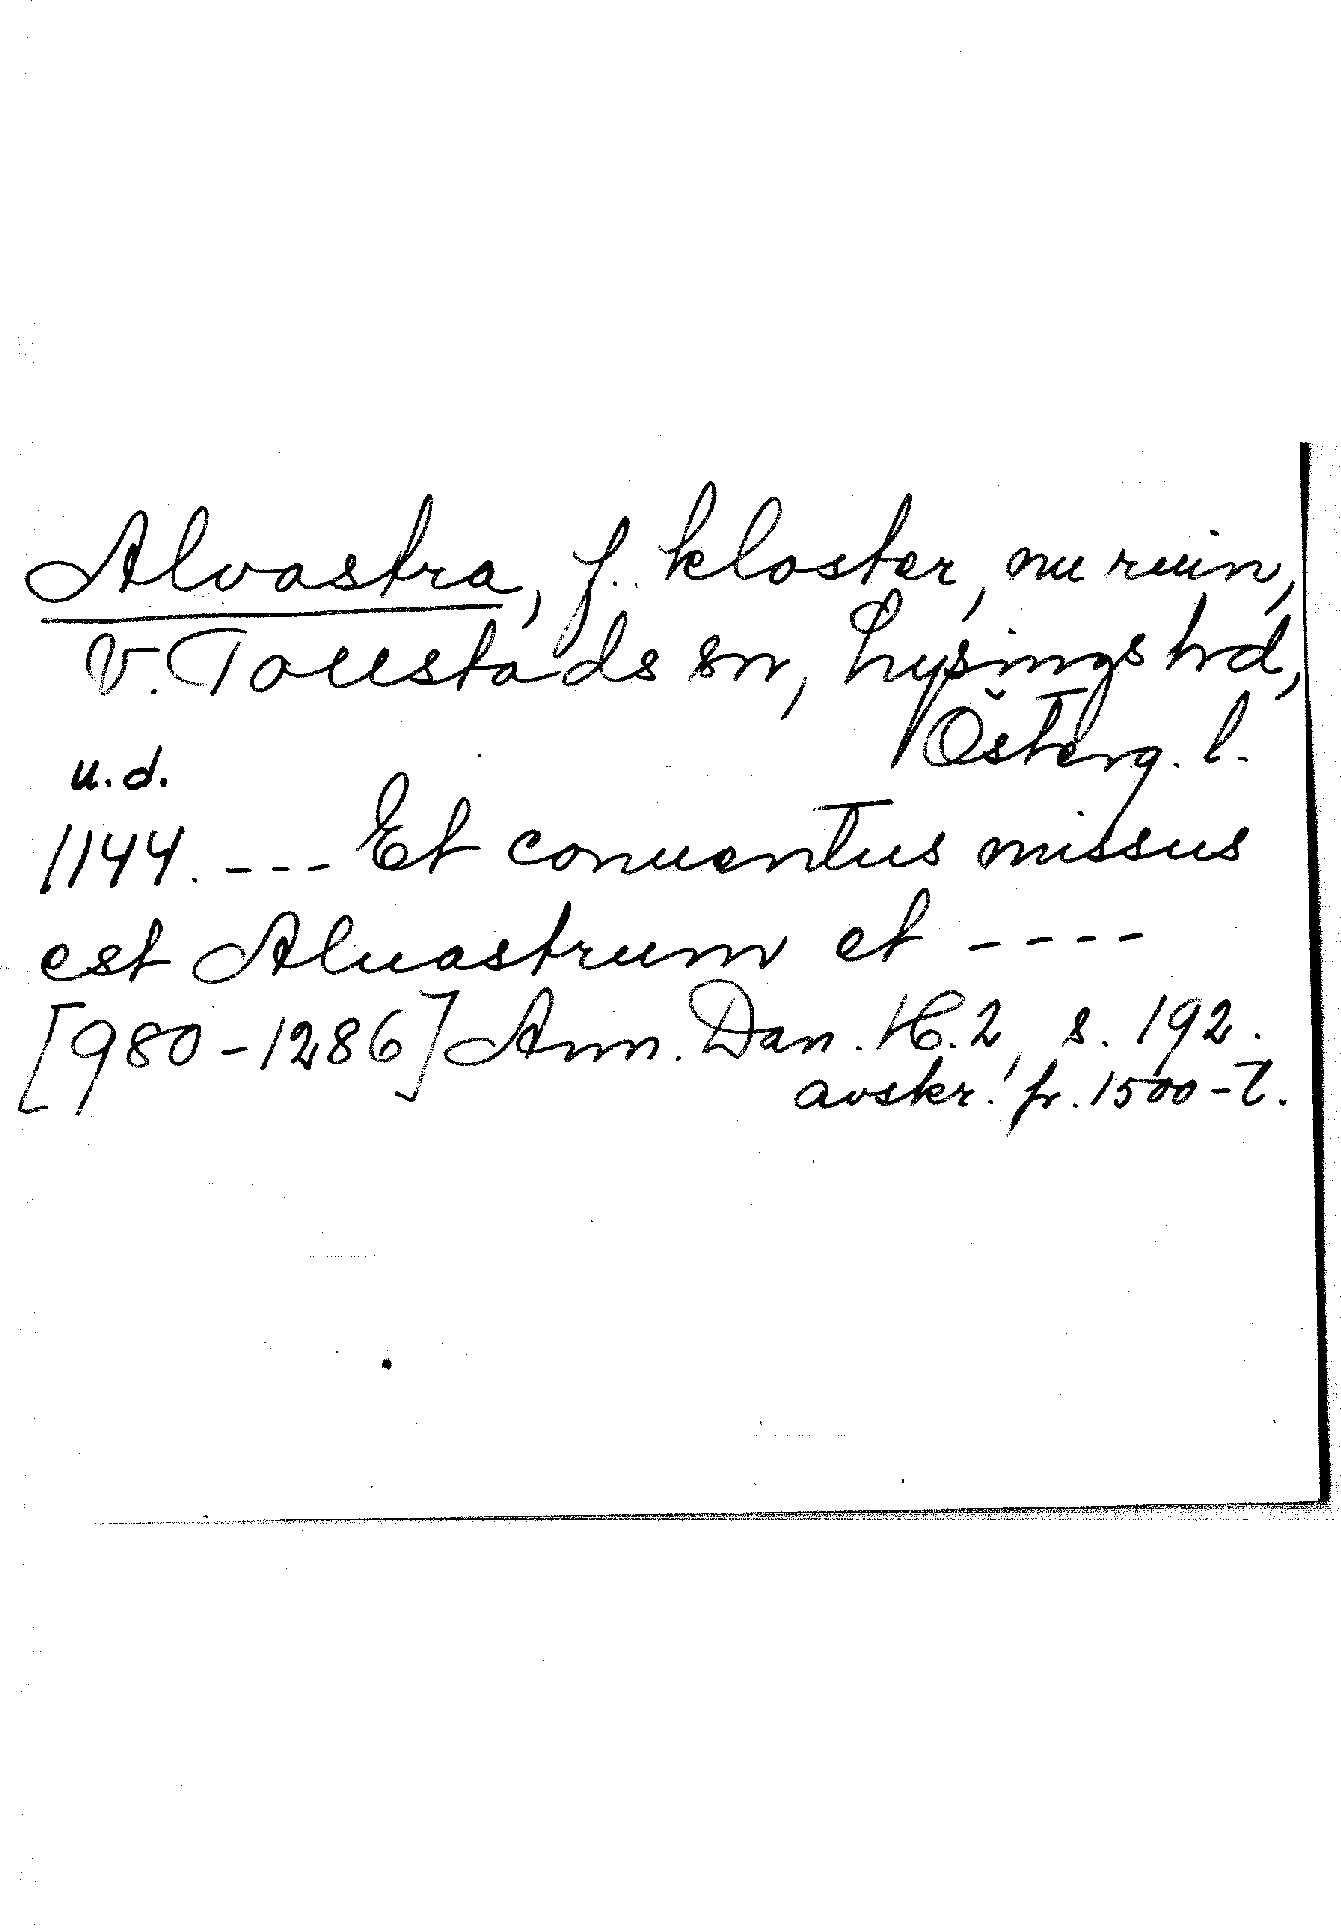 Alvastra, f. kloster, nu ruin,
V. Tollstads sn, Lysings hd,
Österg. l.
u.d.
1144. --- Et conuentus missus
est Aluastrum et ----
[980-1286] Ann. Dan. H.2, s. 192.
avskr. fr. 1500-t.